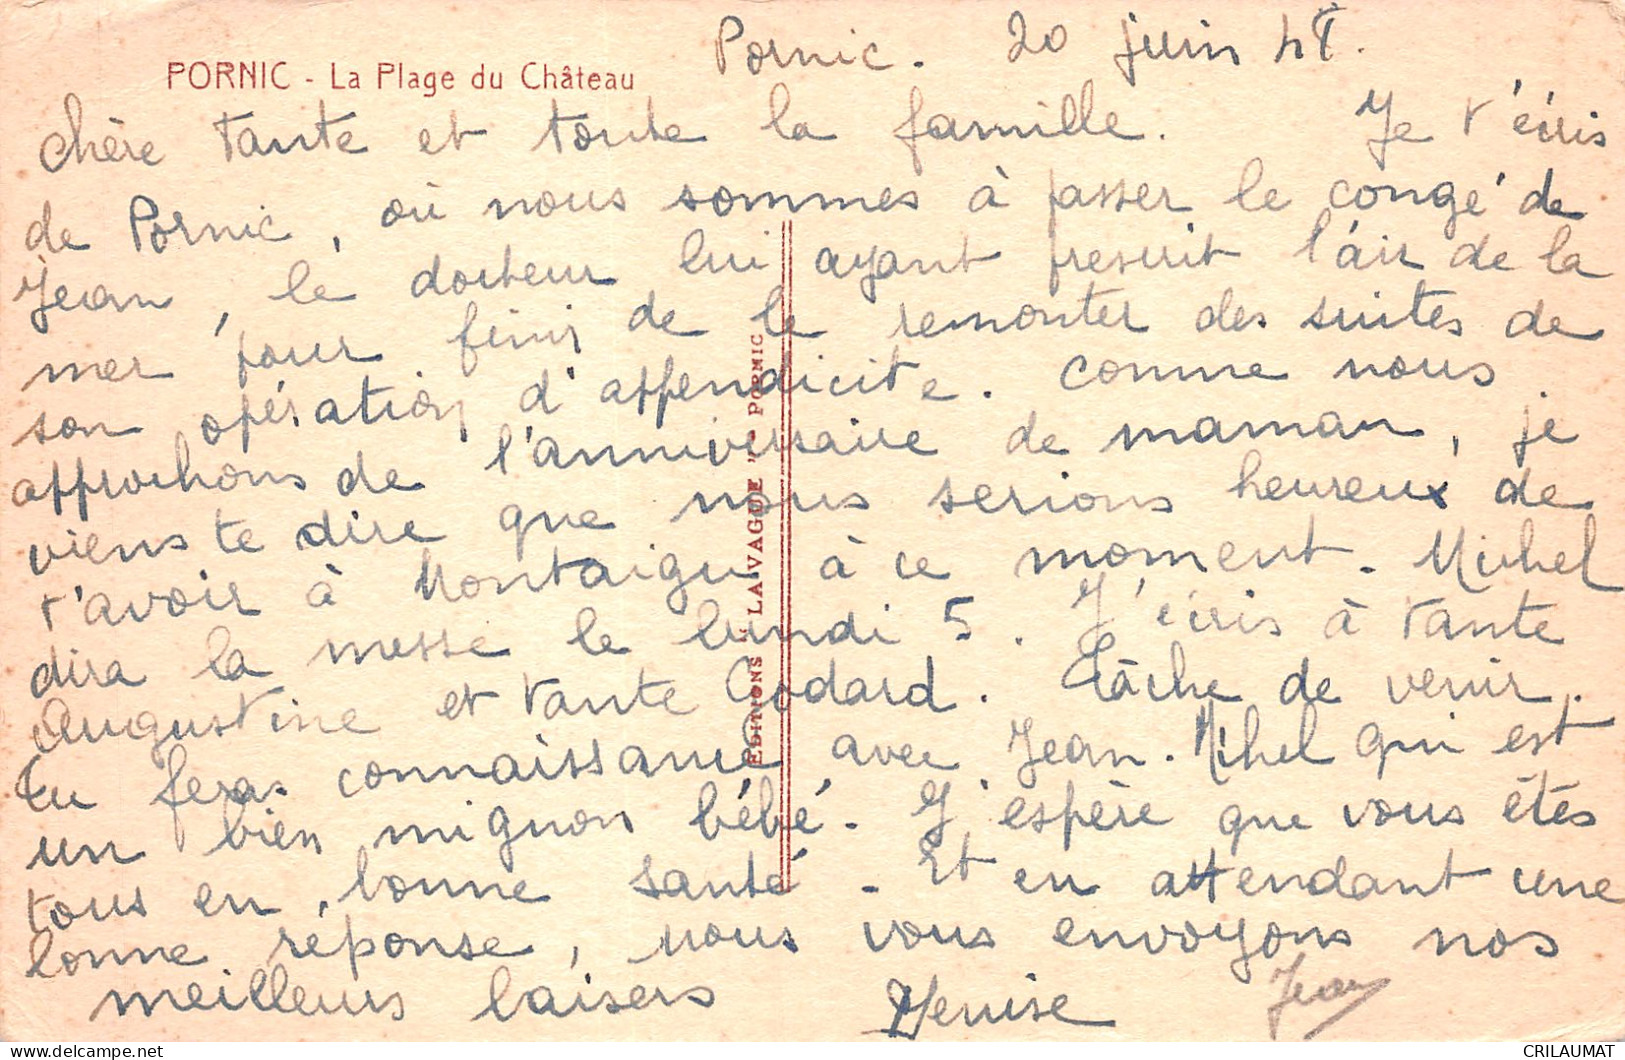 Pornic. 20 juin 48.
PORNIC - La Plage du Château
Chère tante et toute la famille. Je t'écris
de Pornic, où nous sommes à passer le congé de
Jean, le docteur lui ayant prescrit l'air de la
mer pour finir de le remonter des suites de
son opération d'appendicite. Comme nous
approchons de l'anniversaire de maman, je
viens te dire que nous serions heureux de
t'avoir à Montaigu à ce moment. Michel
dira la messe le lundi 5. J'écris à tante
Augustine et tante Godard. Tâche de venir.
Tu feras connaissance avec Jean-Michel qui est
un bien mignon bébé. J'espère que vous êtes
tous en bonne santé. Et en attendant une
bonne réponse, nous vous envoyons nos
meilleurs baisers Denise Jean
EDITIONS "LA VAGUE" - PORNIC
CRILAUMAT